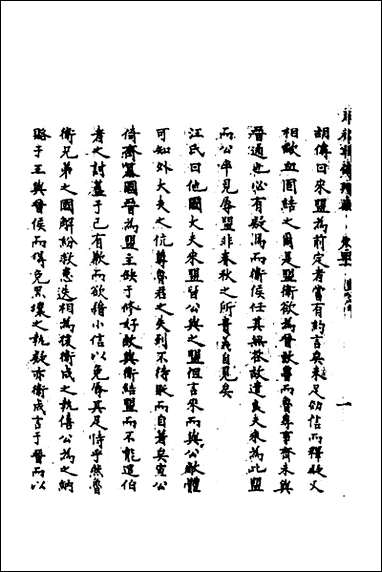 胡傳曰來盟為前定者嘗有約言矣未足効信而釋疑又
相歃血固結之爾是盟衛欲為晉致魯而魯專事齊未與
晉通也必有疑焉而衛侯任其無咎故遣良夫來為此盟
而公卒見辱盟非春秋之所貴義自見矣
汪氏曰他國大夫來盟皆公與之盟但言來而與公敵體
可知外大夫之伉尊魯君之失列不待貶而自著矣宣公
倚齊簒國晉為盟主缺于修好故與衛結盟而不能逭伯
者之討蓋于己有歉而欲藉小信以免辱其足恃乎然魯
衛兄弟之國解紛救患迭相為援衛成之執僖公為之納
賂于王與晉侯而得免黑壤之執疑亦衛成言于晉而以